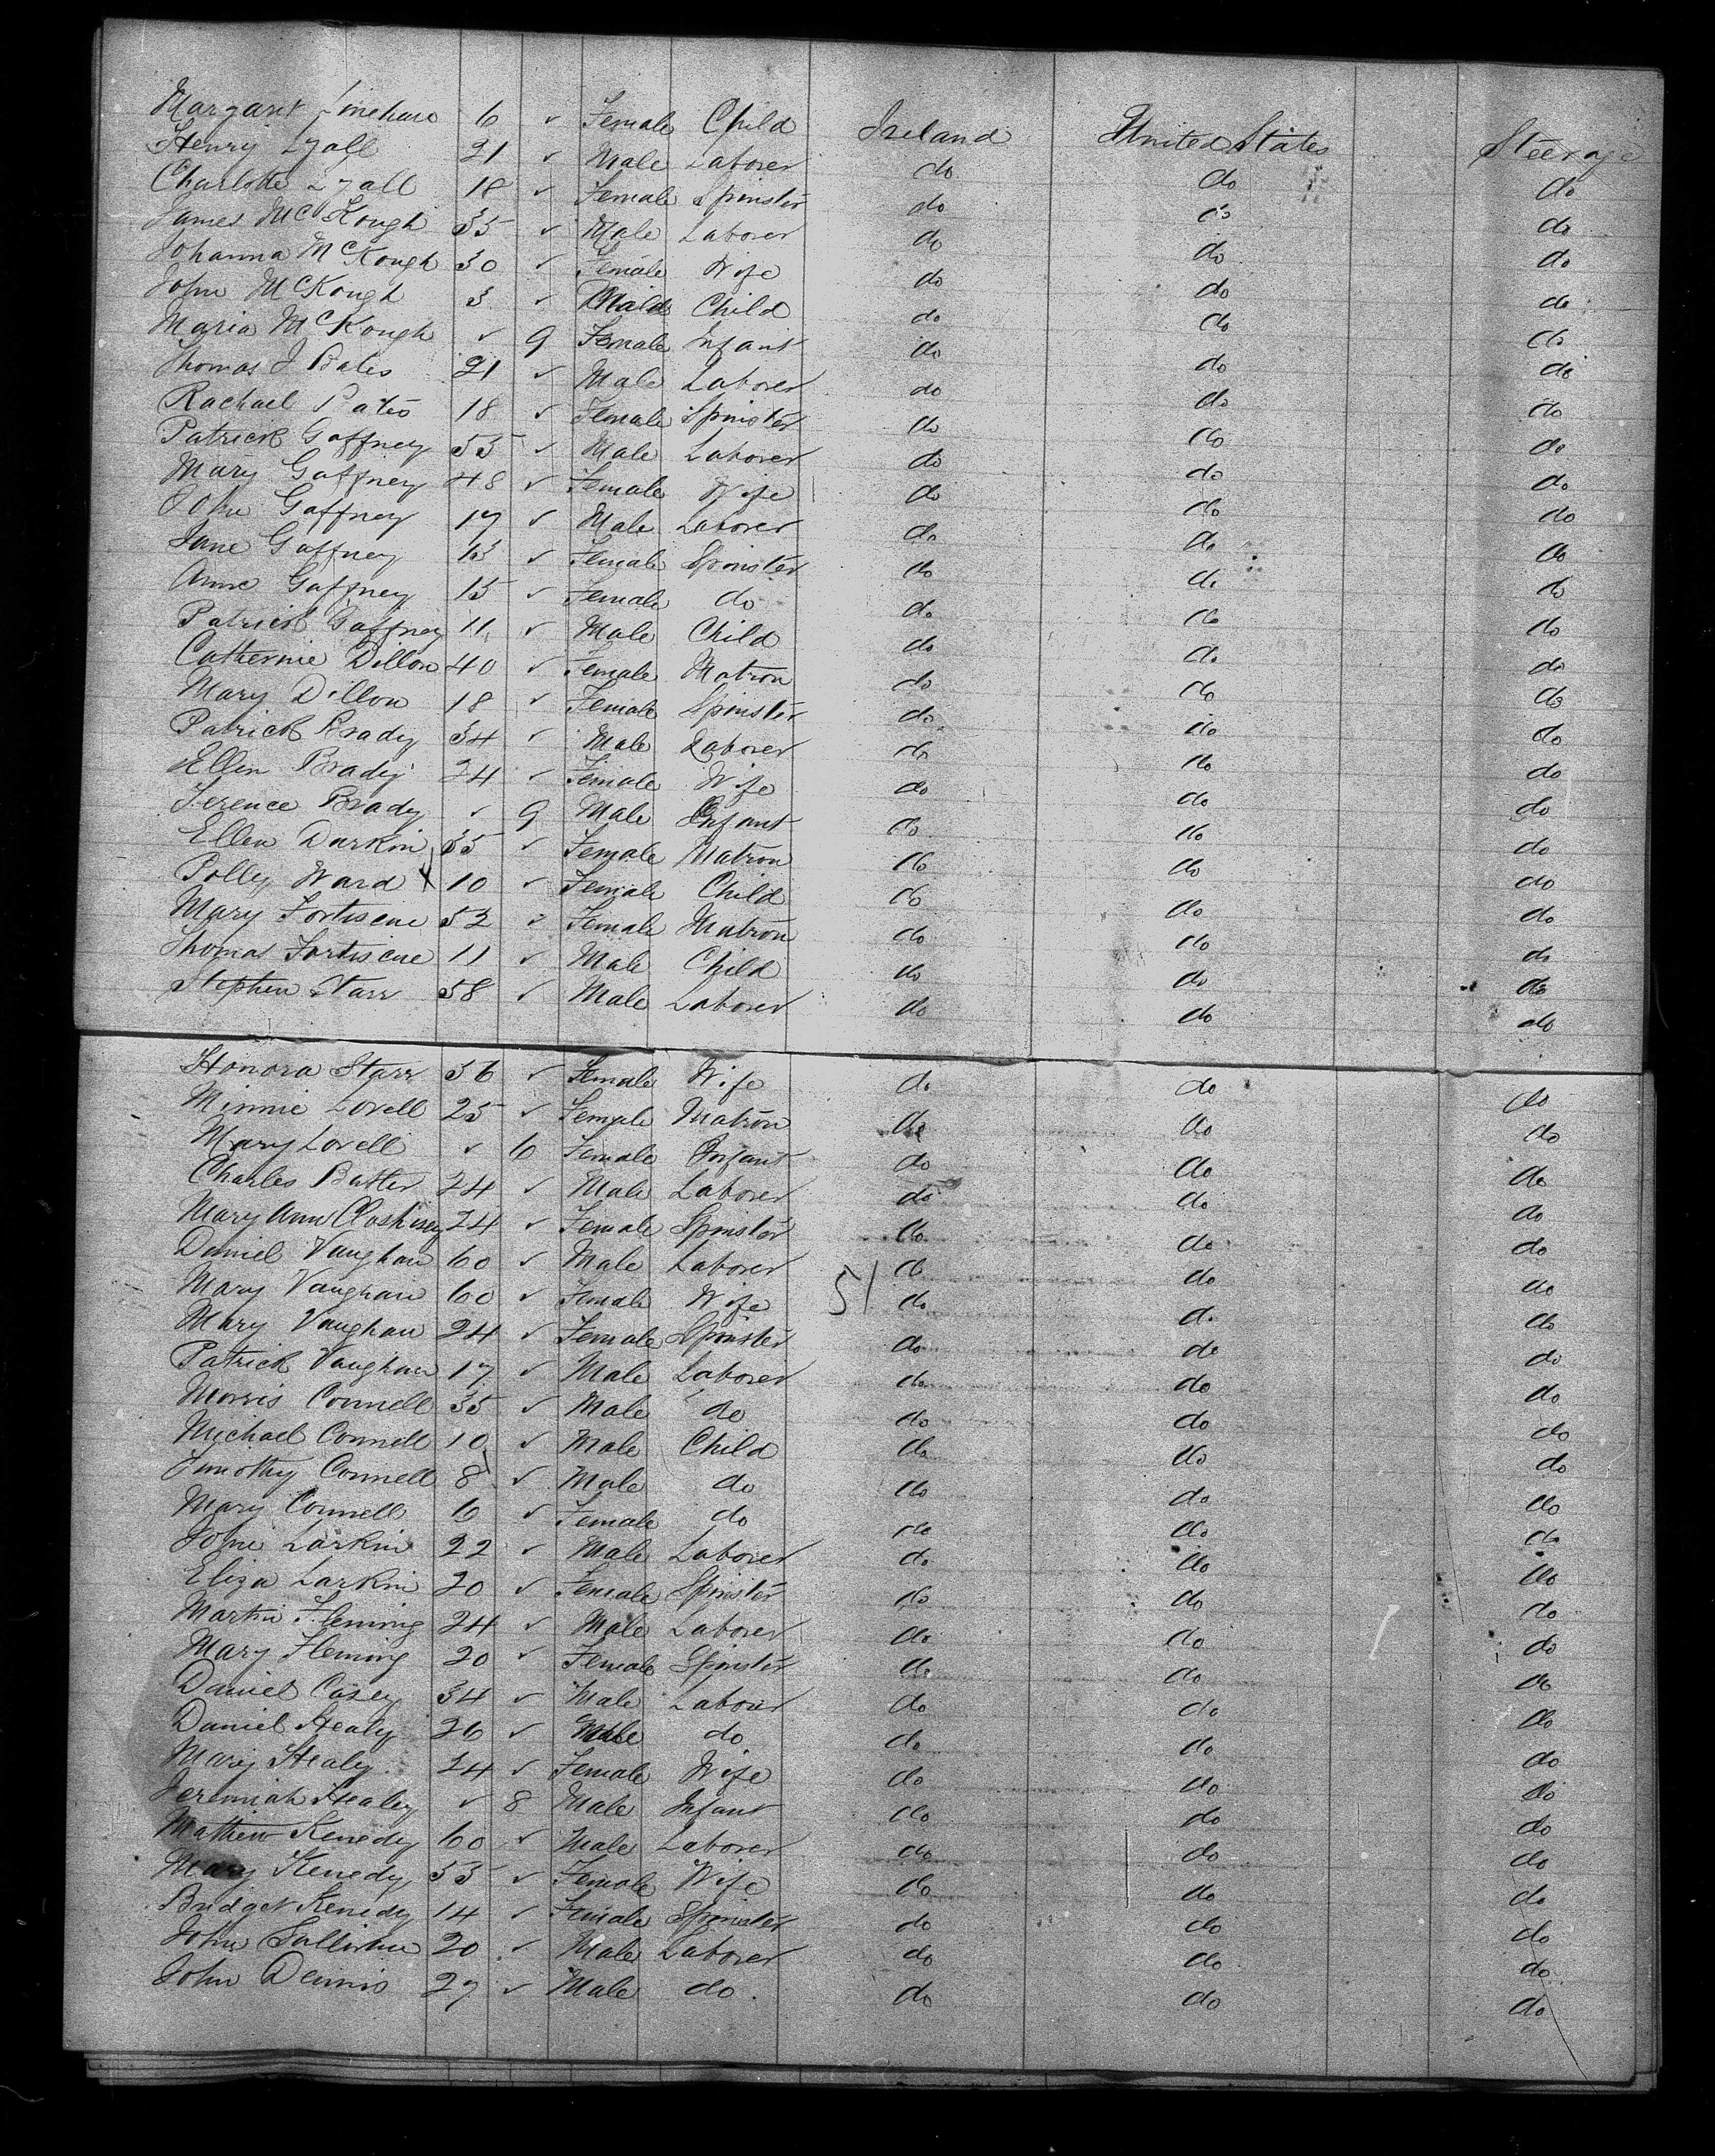 Margaret Linehan 6 ✓ Female Child Ireland United States Steerage
Henry Lyall 21 ✓ Male Laborer do do do
Charlotte Lyall 18 ✓ Female Spinster do do do
James McKough 35 ✓ Male Laborer do do do
Johanna McKough 30 ✓ Female Wife do do do
John McKough 3 ✓ Child do do do
Maria McKough ✓ 9 Female Infant do do do
Thomas J Bates 21 ✓ Male Laborer do do do
Rachael Bates 18 ✓ Female Spinster do do do
Patrick Gaffney 55 ✓ Male Laborer do do do
Mary Gaffney 48 ✓ Female Wife do do do
John Gaffney 17 ✓ Male Laborer do do do
Jane Gaffney ✓ Female Spinster do do do
Anne Gaffney 15 ✓ Female do do do do
Patrick Gaffney 11 ✓ Male Child do do do
Catherine Dillon 40 ✓ Female Matron do do do
Mary Dillon 18 ✓ Female Spinster do do do
Patrick Brady 34 ✓ Male Laborer do do do
Ellen Brady 24 ✓ Female Wife do do do
Terence Brady ✓ 9 Male Infant do do do
Ellen Durkin 35 ✓ Female Matron do do do
Polly Ward 10 ✓ Female Child do do do
Mary Fortiscue 52 ✓ Female Matron do do do
Thomas Fortiscue 11 ✓ Male Child do do do
Stephen Starr 58 ✓ Male Laborer do do do
Honora Starr 56 ✓ Female Wife do do do
Minnie Lovell 25 ✓ Female Matron do do do
Mary Lovell ✓ 6 Female Infant do do do
Charles Butter 24 ✓ Male Laborer do do do
Mary Ann 24 ✓ Female Spinster do do do
Daniel Vaughan 60 ✓ Male Laborer do do do
Mary Vaughan 60 ✓ Female Wife 51 do do do
Mary Vaughan 24 ✓ Female Spinster do do do
Patrick Vaughan 17 ✓ Male Laborer do do do
Morris Connell 35 ✓ Male do do do do
Michael Connell 10 ✓ Male Child do do do
Timothy Connell 8 ✓ Male do do do do
Mary Connell 6 ✓ Female do do do do
John Larkin 22 ✓ Male Laborer do do do
Eliza Larkin 20 ✓ Female Spinster do do do
Martin Fleming 24 ✓ Male Laborer do do do
Mary Fleming 20 ✓ Female Spinster do do do
Daniel Casey 34 ✓ Male Laborer do do do
Daniel Healy 26 ✓ Male do do do do
Mary Healy 24 ✓ Female Wife do do do
Jeremiah Healey ✓ 8 Male Infant do do do
Mathew Kenedy 60 ✓ Male Laborer do do do
Mary Kenedy 55 ✓ Female Wife do do do
Bridget Kenedy 14 ✓ Female Spinster do do do
John Sullivan 20 ✓ Male Laborer do do do
John Dennis 27 ✓ Male do do do do